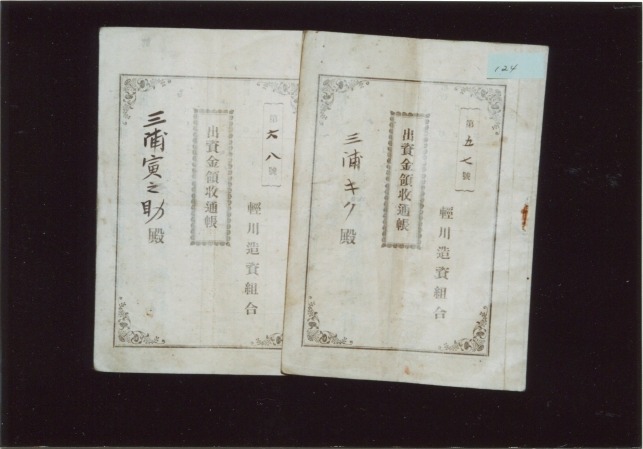 124
第五七號
輕川造資組合
出資金領收通帳
三浦キク殿
第六八號
輕川造資組合
出資金領收通帳
三浦寅之助殿